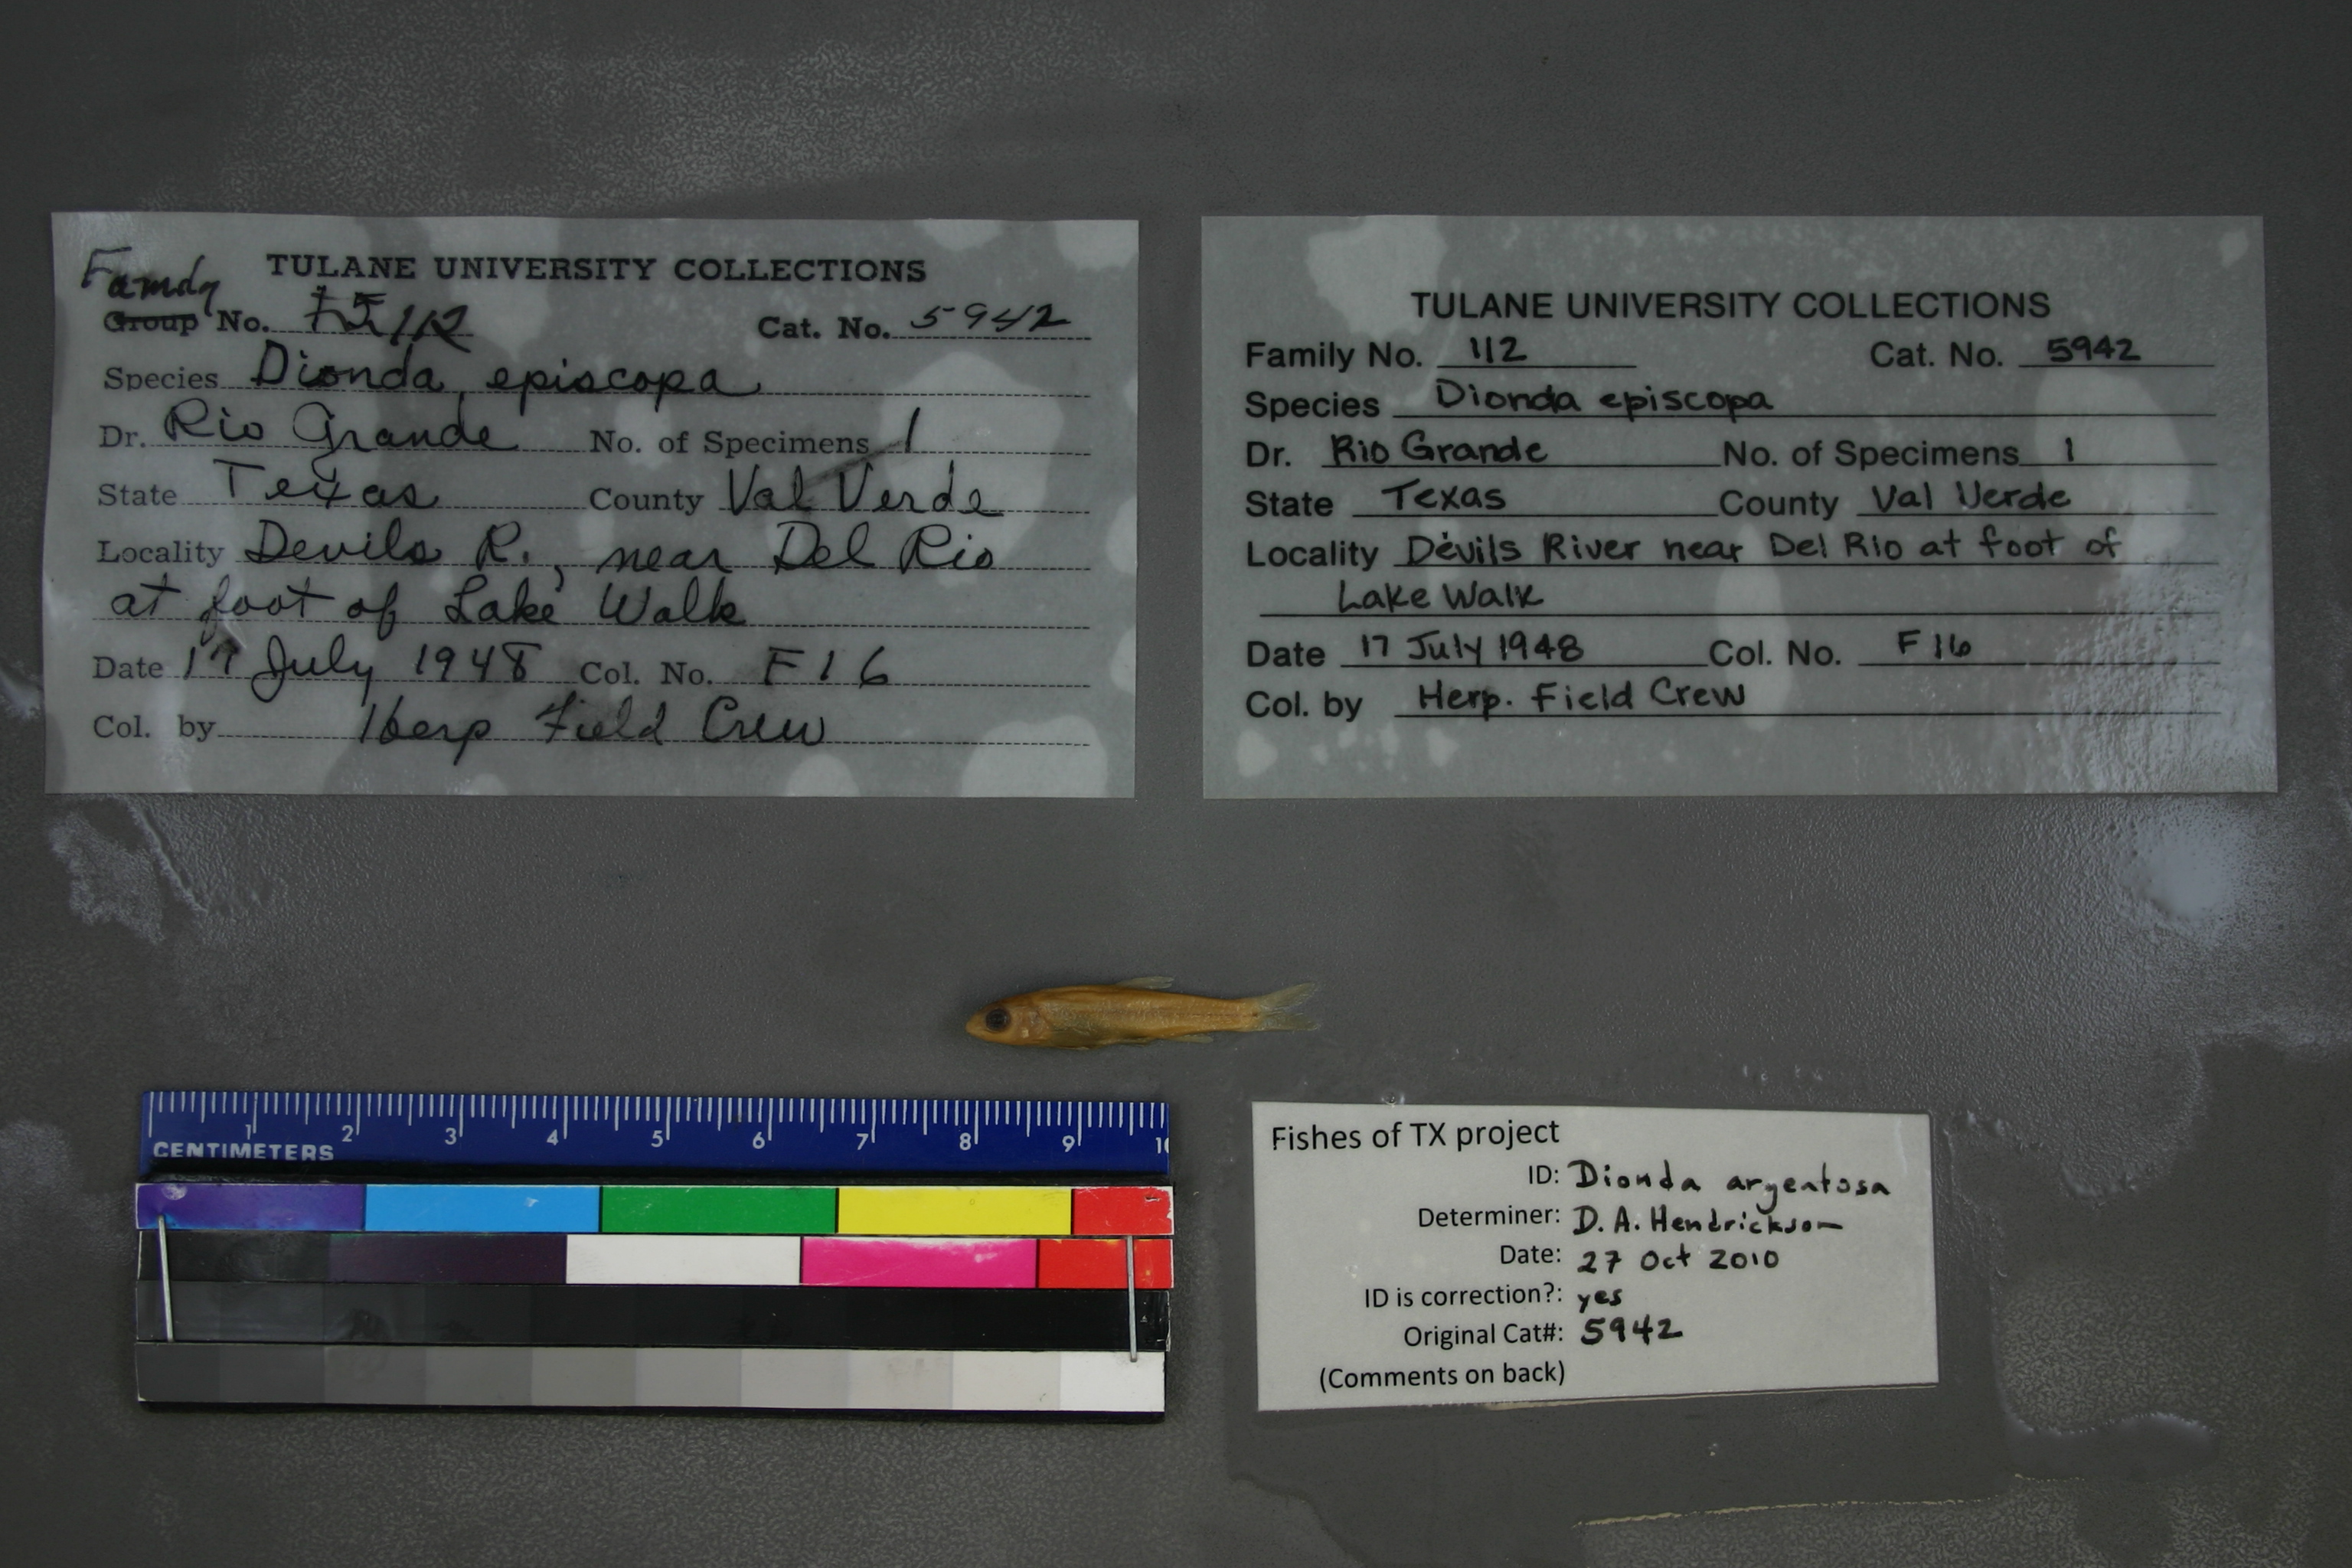 TULANE UNIVERSITY COLLECTIONS
Family
Group No. 112 Cat. No. 5942
Species Dionda episcopa
Dr. Rio Grande No. of Specimens 1
State Texas County Val Verde
Locality Devils R., near Del Rio
at foot of Lake Walk
Date 17 July 1948 Col. No. F16
Col. by Herp Field Crew
TULANE UNIVERSITY COLLECTIONS
Family No. 112 Cat. No. 5942
Species Dionda episcopa
Dr. Rio Grande No. of Specimens 1
State Texas County Val Verde
Locality Devils River near Del Rio at foot of
Lake Walk
Date 17 July 1948 Col. No. F16
Col. by Herp. Field Crew
1 2 3 4 5 6 7 8 9 10
CENTIMETERS
Fishes of TX project
ID: Dionda argentosa
Determiner: D. A. Hendrickson
Date: 27 Oct 2010
ID is correction?: yes
Original Cat#: 5942
(Comments on back)